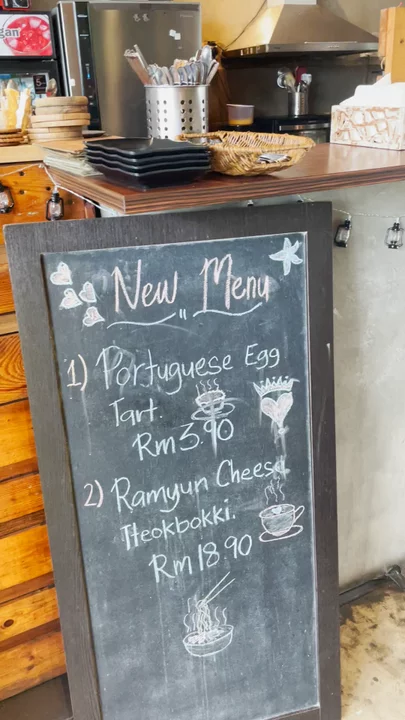 New Menu
1) Portuguese Egg
Tart.
Rm 3.90
2) Ramyun Cheese
Tteokbokki.
Rm 18.90